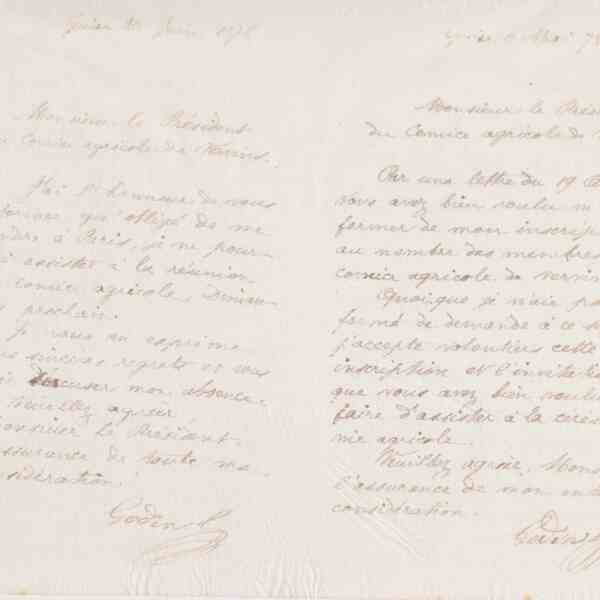 Guise Juin 187
Monsieur le Président
Comice agricole de Vervins.
J'ai l'honneur de vous
informer qu'obligé de me
rendre à Paris, je ne pour-
assister à la réunion
comice agricole, Diman-
prochain.
Je vous en exprime
sincères regrets et vous
excuser mon absence.
Veuillez agréer
Monsieur le Président
assurance de toute ma
considération.
Godin
Guise Mai 7
Monsieur le Prés
du Comice agricole de V
Par une lettre du 19
vous avez bien voulu m
former de mon inscrip
au nombre des membres
comice agricole de Vervin
Quoique je n'aie pa
formé de demande à ce s
j'accepte volontiers cette
inscription et l'invitati
que vous avez bien voulu
faire d'assister à la céré
nie agricole.
Veuillez agréer, Mons
l'assurance de mon enti
considération.
Godin